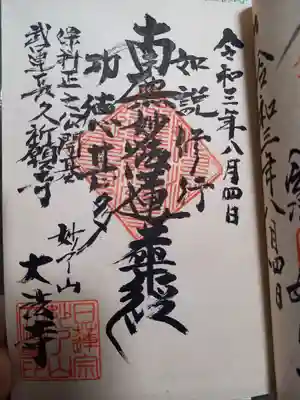 令和三年八月四日
令和三年八月四日
如説修行
南無妙法蓮華經
功徳甚多
保科正之公開基
武運長久祈願寺
妙了山
大法寺
日蓮宗
妙了山